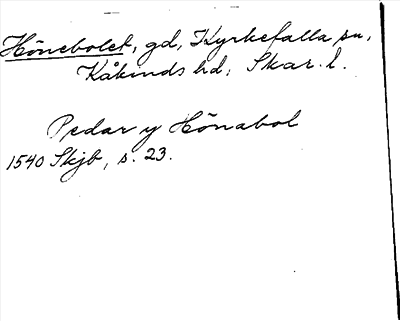 Hönebolet, gd, Kyrkefalla sn,
Kåkinds hd, Skar. l.
Pedar y Hönabol
1540 Skjb, s. 23.